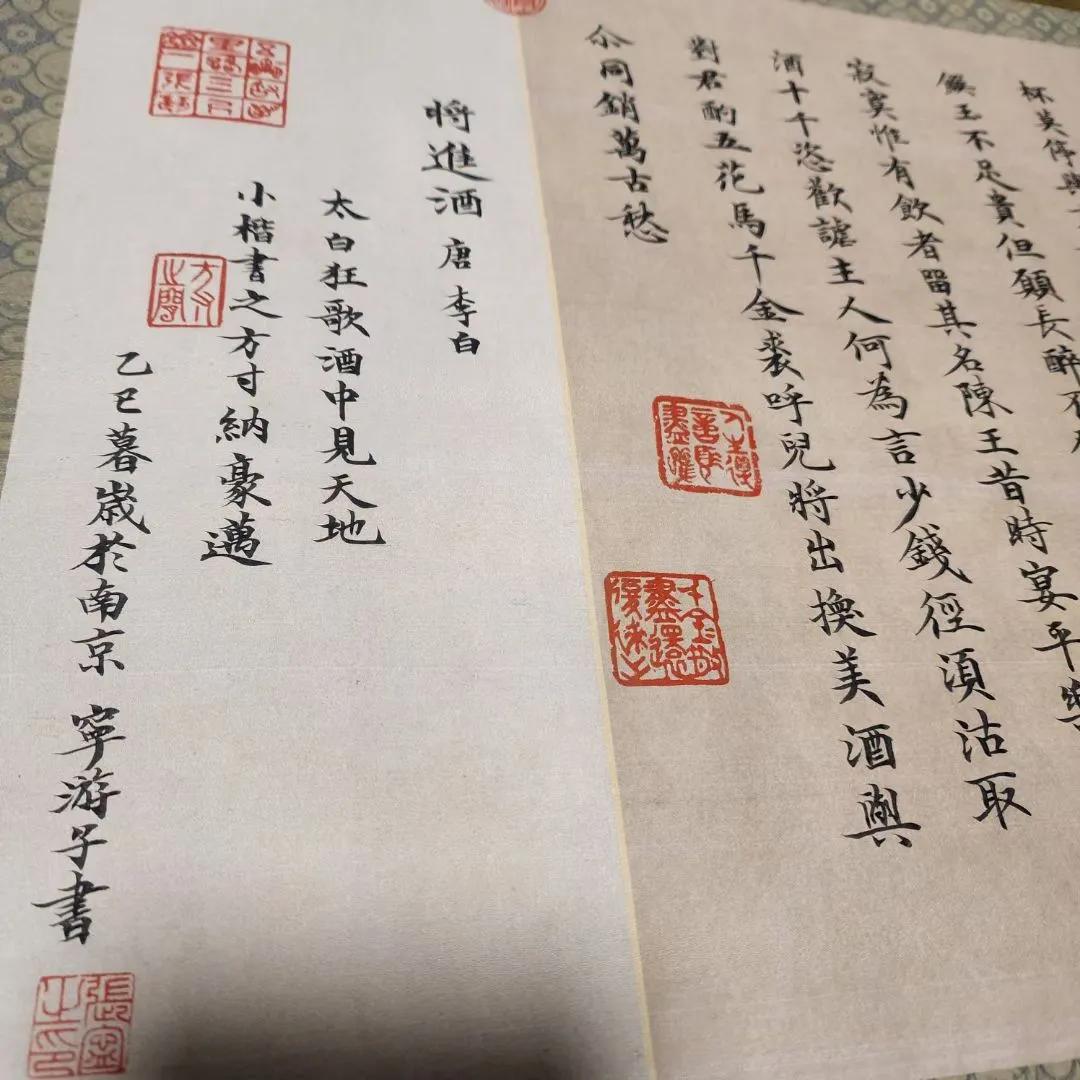 杯莫停與
饌玉不足貴但願長醉不
寂寞惟有飲者留其名陳王昔時宴平樂
酒十千恣歡謔主人何為言少錢徑須沽取
對君酌五花馬千金裘呼兒將出換美酒與
尒同銷萬古愁
人生得意須盡歡
千金散盡還復來
將進酒 唐 李白
太白狂歌酒中見天地
小楷書之方寸納豪邁
乙巳暮歲於南京 寧游子書
方寸之間
張寧之印